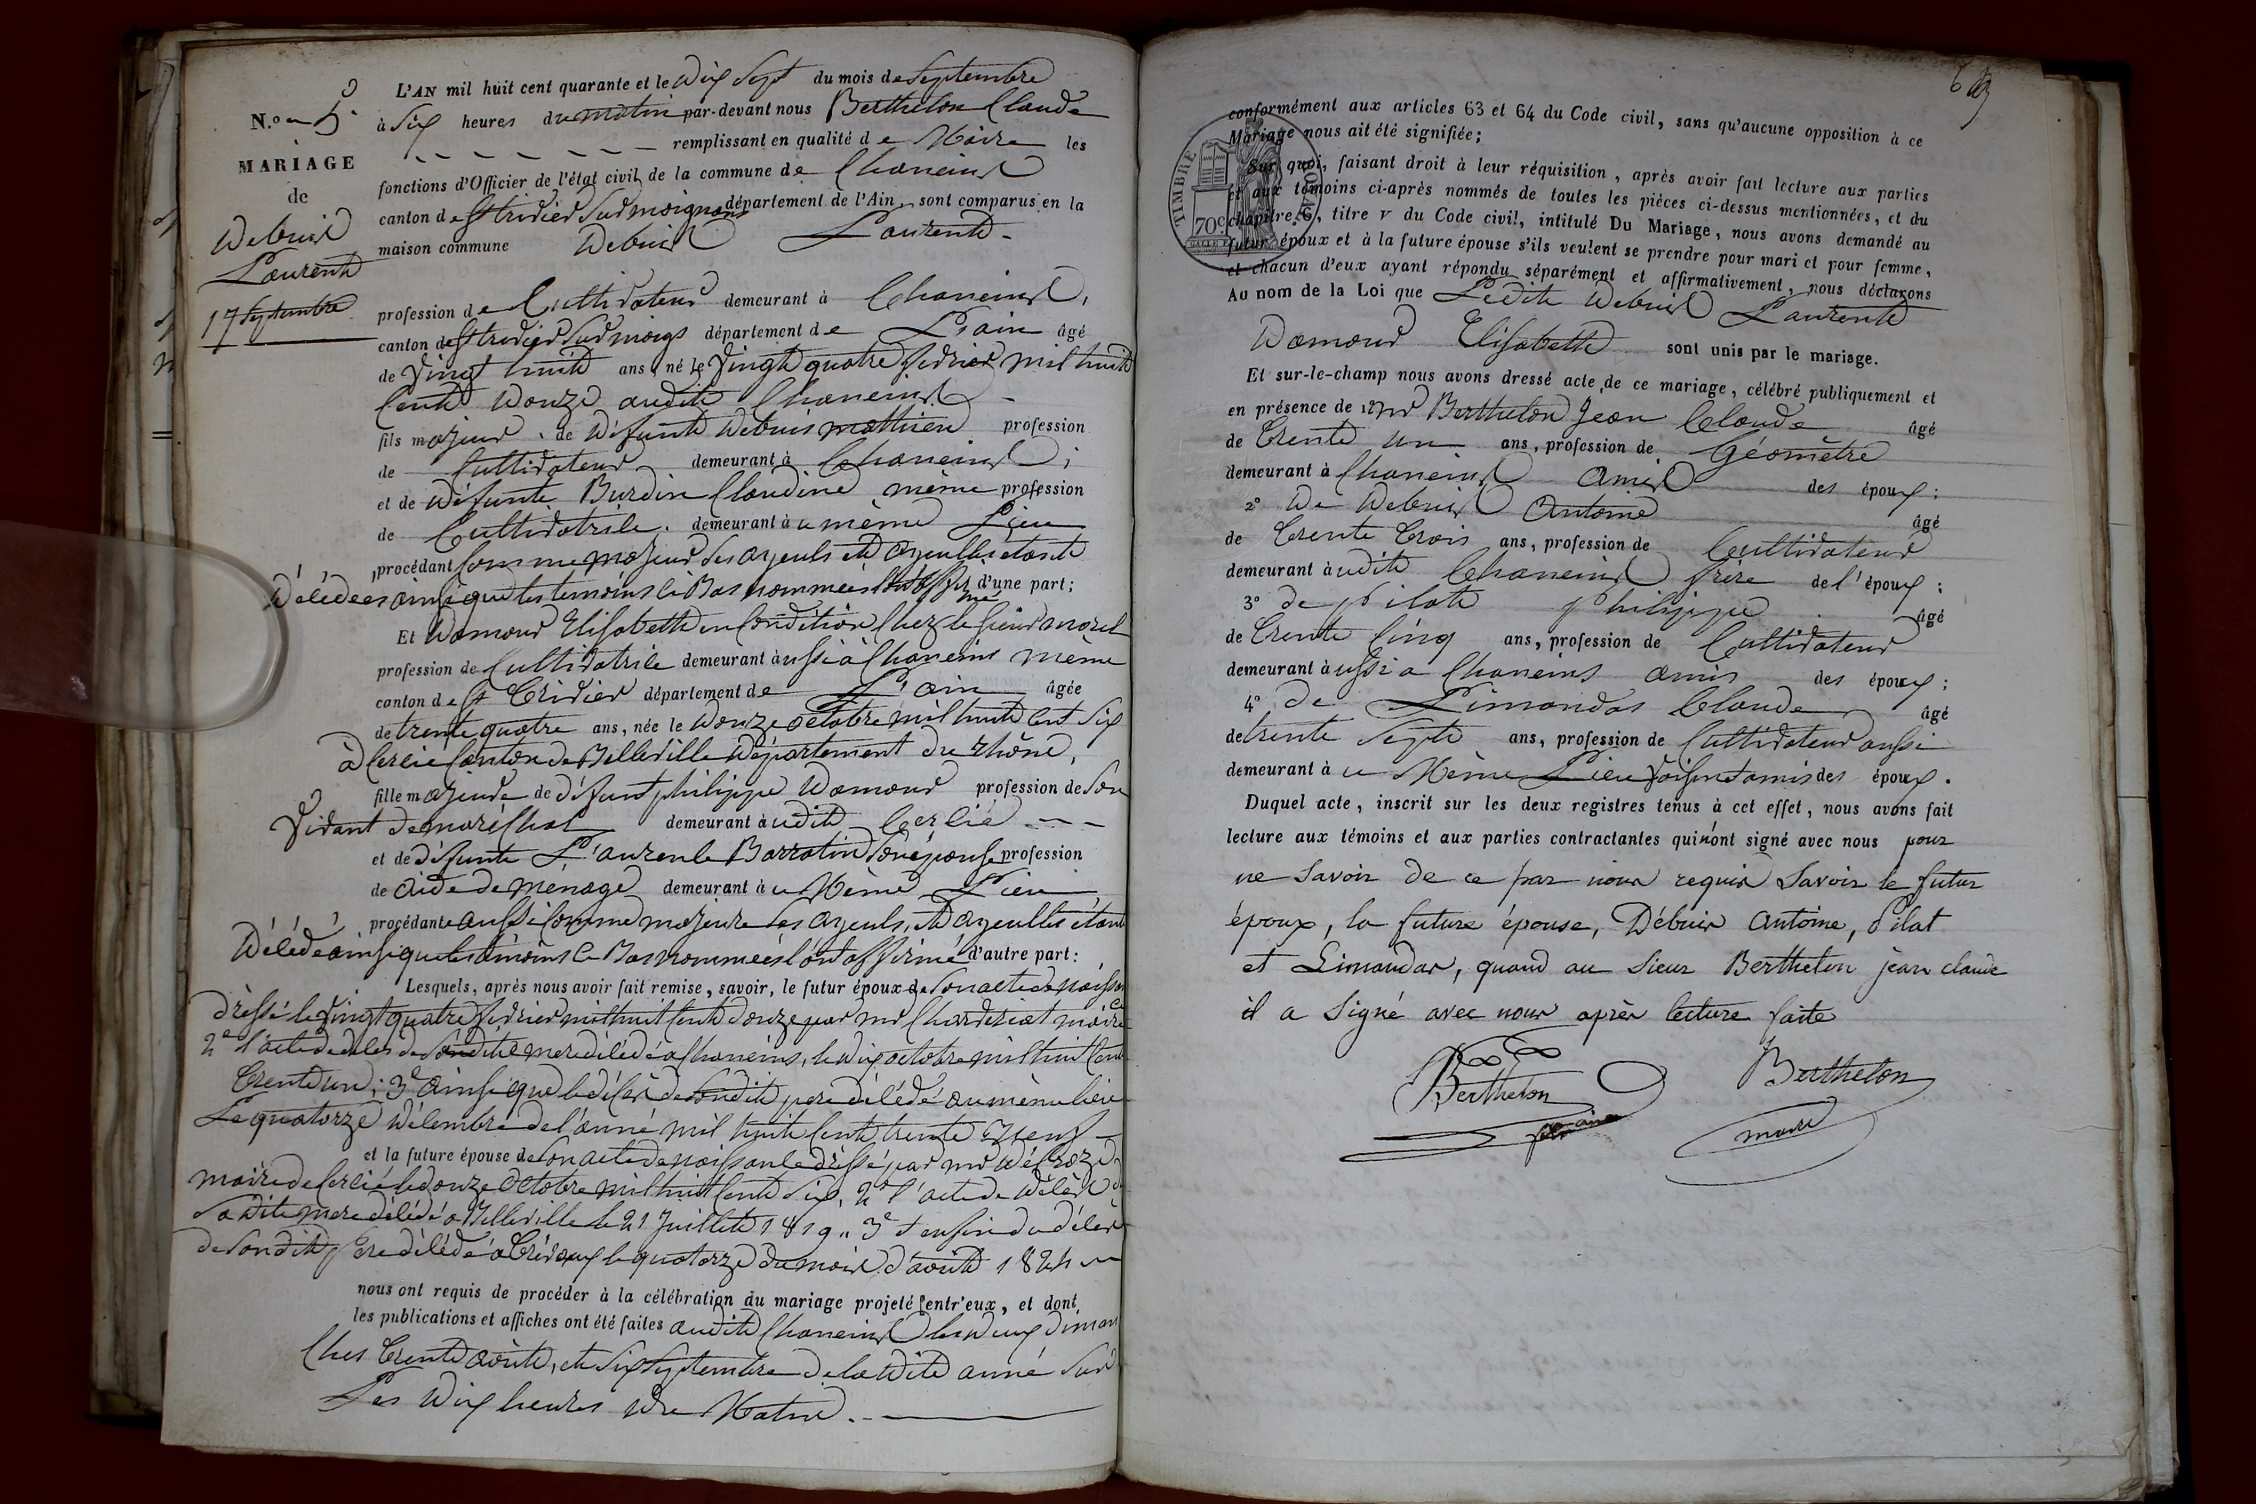 L'AN mil huit cent quarante et le dix Sept du mois de Septembre
N.o 5
à Six heures du matin par-devant nous Berthelon Claude
remplissant en qualité de Maire les
MARIAGE
fonctions d'Officier de l'état civil de la commune de Chaneins
de
canton de St trivier Sur moignans département de l'Ain, sont comparus en la
Debuis
maison commune Debuis Laurent
Laurent
17 Septembre
profession de Cultivateur demeurant à Chaneins,
canton de St trivier Sur moigs département de L'ain âgé
de Vingt huit ans, né le Vingt quatre fevrier mil huit
Cent Douze audit Chaneins
fils majeur de Defunt Debuis mathieu profession
de Cultivateur demeurant à Chaneins ;
et de Défunte Burdin Claudine même profession
de Cultivatrice demeurant à u même Lieu
procédant Comme majeur Ses ayeuls et ayeulles étant
Décédées ainsi que les temoins Ci Bas nommées d'une part ;
Et Damour Elisabeth en Condition Chez le Sieur morel
profession de Cultivatrice demeurant à ussi à Chaneins même
canton de St Trivier département de L'ain âgée
de trente quatre ans, née le Douze octobre mil huit cent Six
à Cercié Canton de Belleville Département du rhône,
fille majeure de défunt philippe Damour profession de Son
Vivant de maréchal demeurant à udit Cercié
et de défunte L'aurence Barratin Son épouse profession
de aide de ménage demeurant à u Même Lieu
procédante aussi Comme majeure Ses ayeuls, et ayeulles étant
Décédé ainsi que les témoins Ci Bas nommées l'ont affirmé d'autre part :
Lesquels, après nous avoir fait remise, savoir, le futur époux de Son acte de naissance
dressé le Vingt quatre fevrier mil huit Cent douze par mr Charderiat maire
2e l'acte de déces de Sondite mere décédé a Chaneins, le Dix octobre mil huit Cent
Trente un ; 3e ainsi que le décès de Sondit pere décédé au même lieu
Le quatorze Décembre de l'anné mil huit Cent trente Neuf
et la future épouse de Son acte de naissance dréssé par mr Décroze
maire de Cercié le douze Octobre mil huit Cent Six, 2e l'acte de Décès de
Sa Dite mere décédé a Belleville le 21 Juillet 1819 „ 3e et enfin du décès
de Sondit Pere décédé a le quatorze du mois d'août 1824
nous ont requis de procéder à la célébration du mariage projeté entr'eux, et dont
les publications et affiches ont été faites audit Chaneins les Deux Diman
Ches Trente août, et Six Septembre de la Dite anné Sur
Les Dix heures Du Matin.
conformément aux articles 63 et 64 du Code civil, sans qu'aucune opposition à ce
Mariage nous ait été signifiée ;
Sur quoi, faisant droit à leur réquisition, après avoir fait lecture aux parties
et aux témoins ci-après nommés de toutes les pièces ci-dessus mentionnées, et du
chapitre 6, titre v du Code civil, intitulé Du Mariage, nous avons demandé au
futur époux et à la future épouse s'ils veulent se prendre pour mari et pour femme,
et chacun d'eux ayant répondu séparément et affirmativement, nous déclarons
Au nom de la Loi que Ledit Debuis Laurent
Damour Elisabeth sont unis par le mariage.
Et sur-le-champ nous avons dressé acte de ce mariage, célébré publiquement et
en présence de 1o mr Berthelon Jean Claude âgé
de Trente un ans, profession de Géomètre
demeurant à Chaneins Amis des époux ;
2o De Debuis Antoine âgé
de Trente Trois ans, profession de Cultivateur
demeurant à udit Chaneins frère de l'époux ;
3o de Pilat Philippe âgé
de Trente Cinq ans, profession de Cultivateur
demeurant à ussi a Chaneins amis des époux ;
4o de Limandas Claude âgé
de trente Sept ans, profession de Cultivateur aussi
demeurant à u Même Lieu Voisin et amis des époux.
Duquel acte, inscrit sur les deux registres tenus à cet effet, nous avons fait
lecture aux témoins et aux parties contractantes qui n'ont signé avec nous pour
ne Savoir de ce par nous requis Savoir le futur
époux, la future épouse, Débuis Antoine, Pilat
et Limandas, quand au Sieur Berthelon jean claude
il a Signé avec nous après lecture faite
Berthelon Berthelon
maire
TIMBRE ROYAL
70c